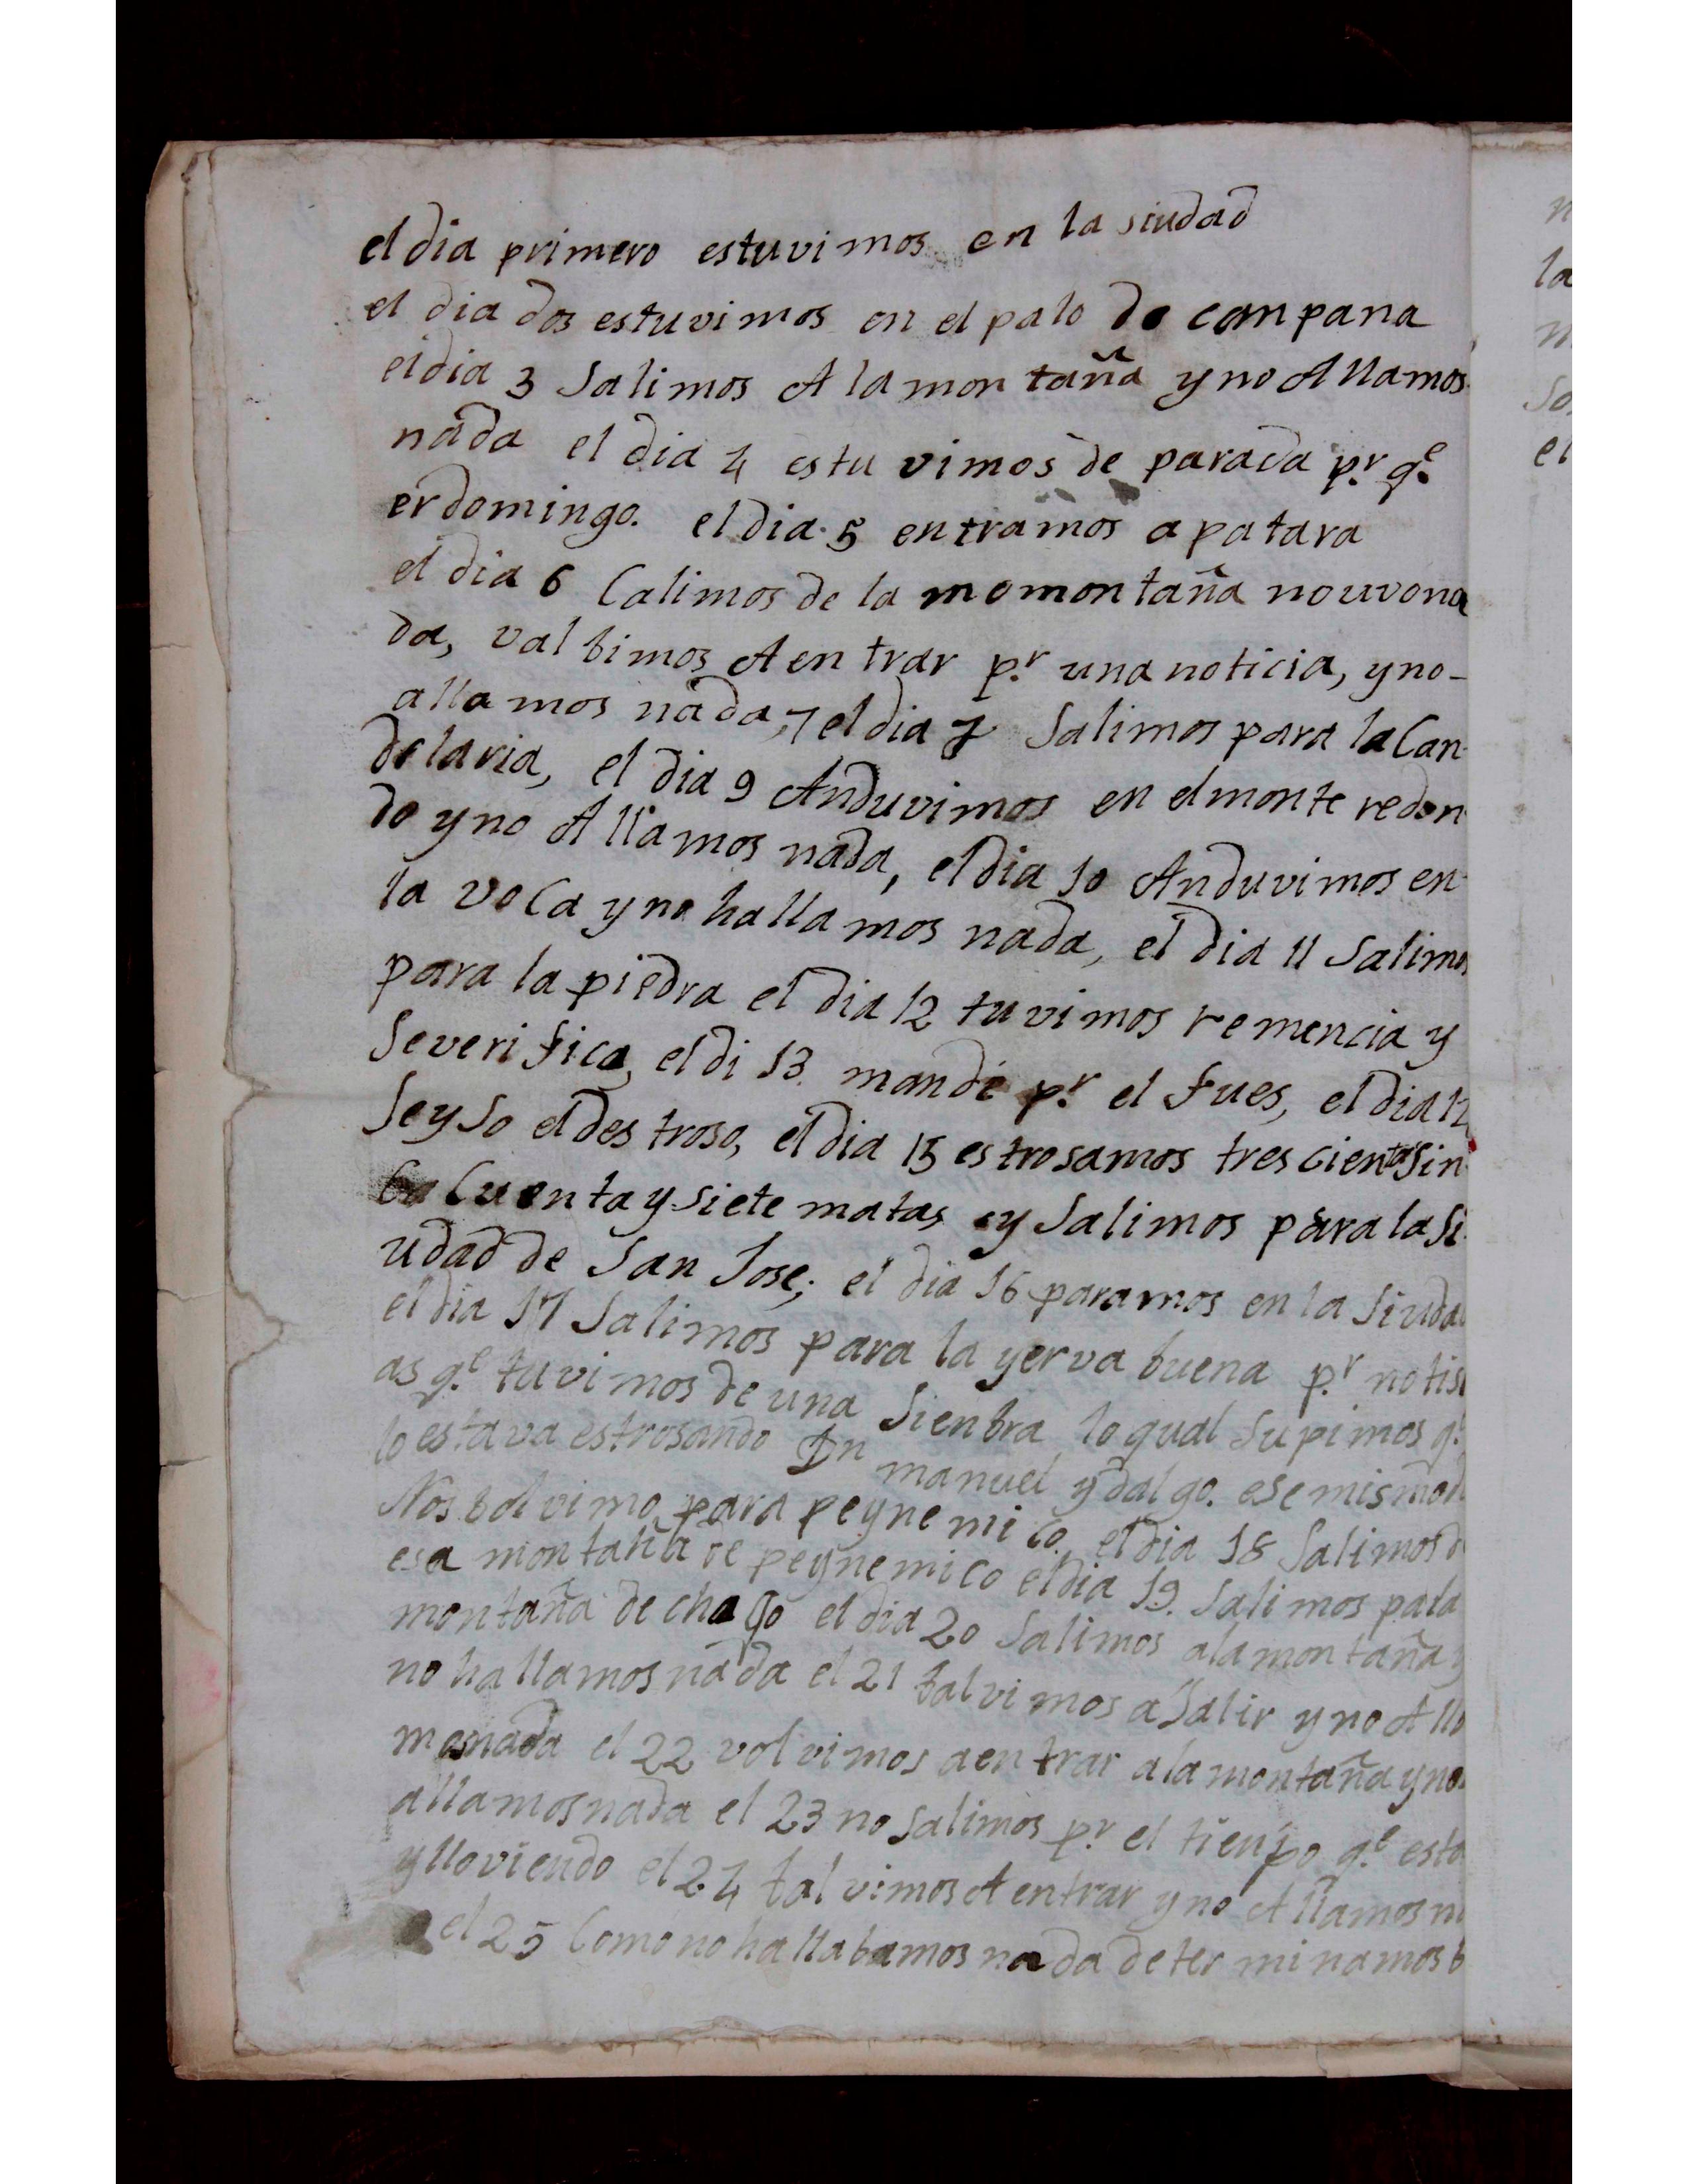 el dia primero estuvimos en la siudad
el dia dos estuvimos en el palo de campana
el dia 3 Salimos A la montaña y no Allamos
nada el dia 4 estuvimos de parada p.r q.e
er domingo. el dia 5 entramos a patara
el dia 6 Calimos de la momontaña no uvo na
da, valbimos A entrar p.r una noticia, y no-
allamos nada, el dia 7 Salimos para la Can
delaria, el dia 9 Anduvimos en el monte redon
do y no Allamos nada, el dia 10 Anduvimos en
la voca y no hallamos nada, el dia 11 Salimos
para la piedra el dia 12 tuvimos remencia y
Severifica, el di 13 mandé p.r el Fues, el dia 14
Se yso el destroso, el dia 15 estrosamos trescientos sin
cuenta y siete matas y Salimos para la Si
udad de San Jose; el dia 16 paramos en la Siuda
el dia 17 Salimos para la yerva buena p.r notisi
as q.e tuvimos de una Sienbra lo qual Supimos q.e
lo estava estrosando Dn manuel ydalgo. ese mismo d
Nos bolvimo para peynemico, el dia 18 Salimos d
esa montaña de peynemico el dia 19. Salimos pala
montaña de chago el dia 20 Salimos ala montaña y
no hallamos nada el 21 balvimos a Salir y no Alla
mos nada el 22 volvimos a entrar ala montaña y no
allamos nada el 23 no salimos p.r el tienpo q.e esta
y lloviendo el 24 balvimos A entrar y no Allamos n
el 25 Como no hallabamos nada determinamos b
n
la
n
So
el